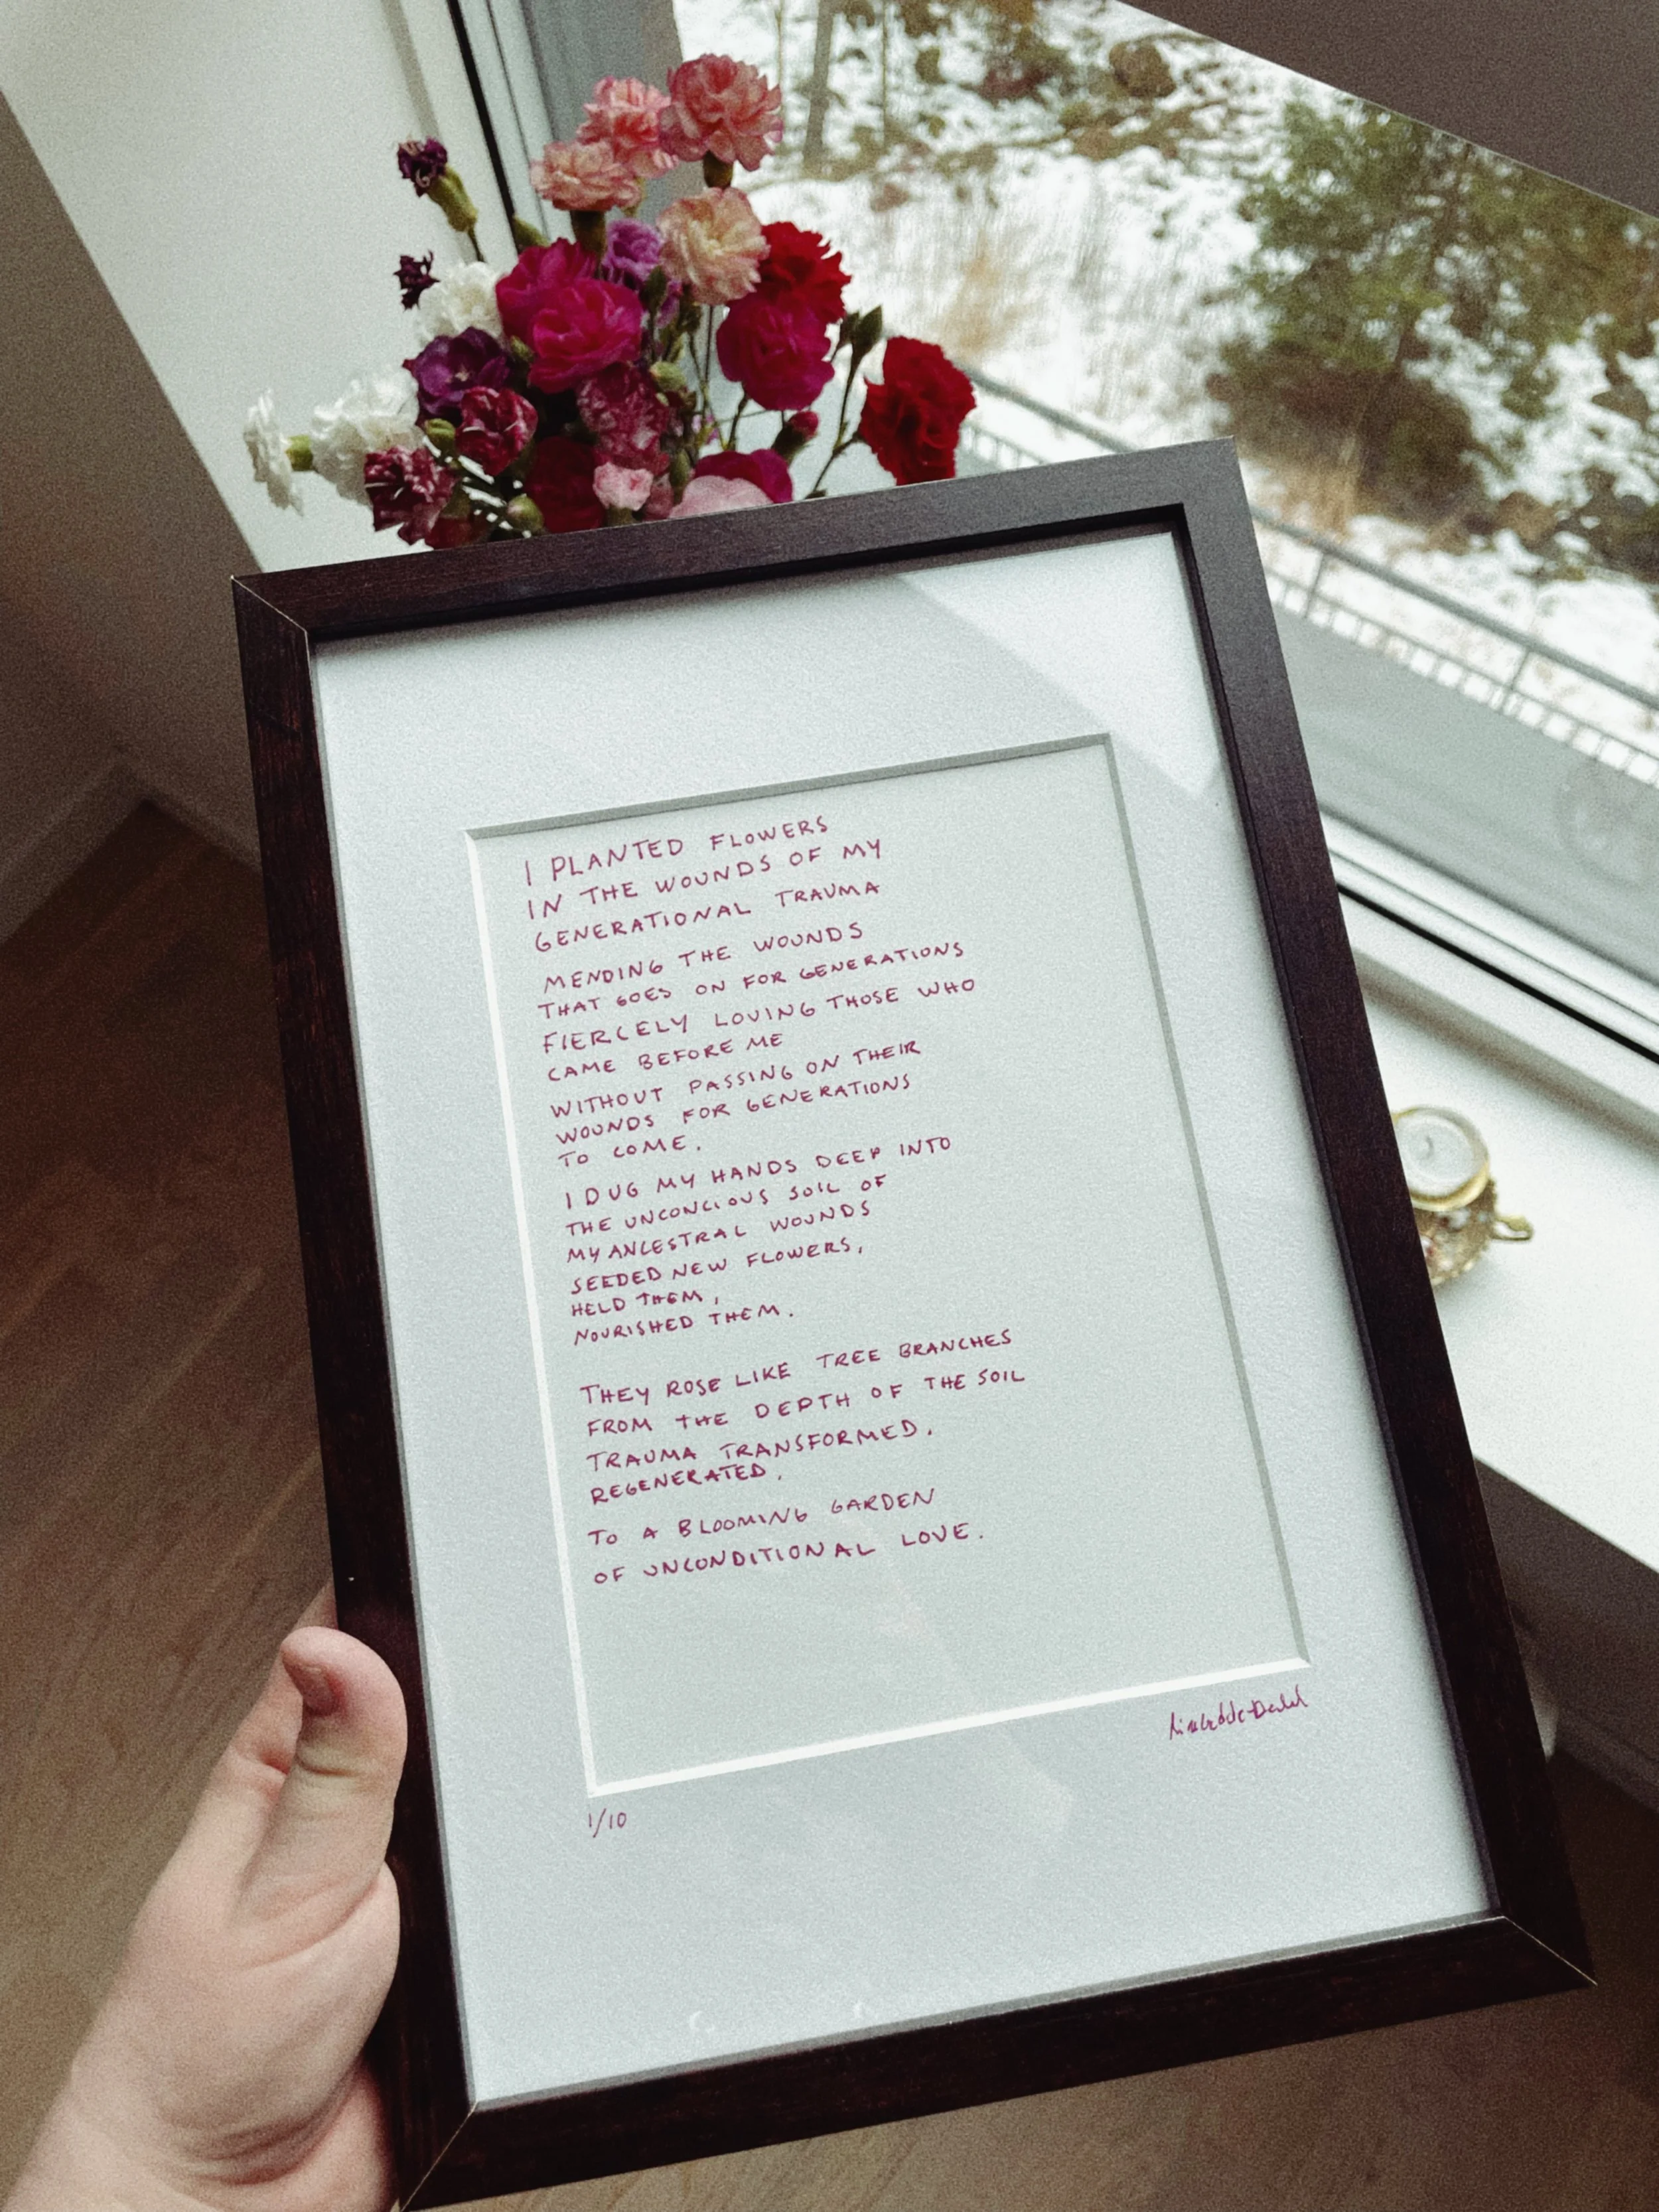 I PLANTED FLOWERS
IN THE WOUNDS OF MY
GENERATIONAL TRAUMA
MENDING THE WOUNDS
THAT GOES ON FOR GENERATIONS
FIERCELY LOVING THOSE WHO
CAME BEFORE ME
WITHOUT PASSING ON THEIR
WOUNDS FOR GENERATIONS
TO COME.
I DUG MY HANDS DEEP INTO
THE UNCONCIOUS SOIL OF
MY ANCESTRAL WOUNDS
SEEDED NEW FLOWERS,
HELD THEM,
NOURISHED THEM.
THEY ROSE LIKE TREE BRANCHES
FROM THE DEPTH OF THE SOIL
TRAUMA TRANSFORMED.
REGENERATED.
TO A BLOOMING GARDEN
OF UNCONDITIONAL LOVE.
1/10